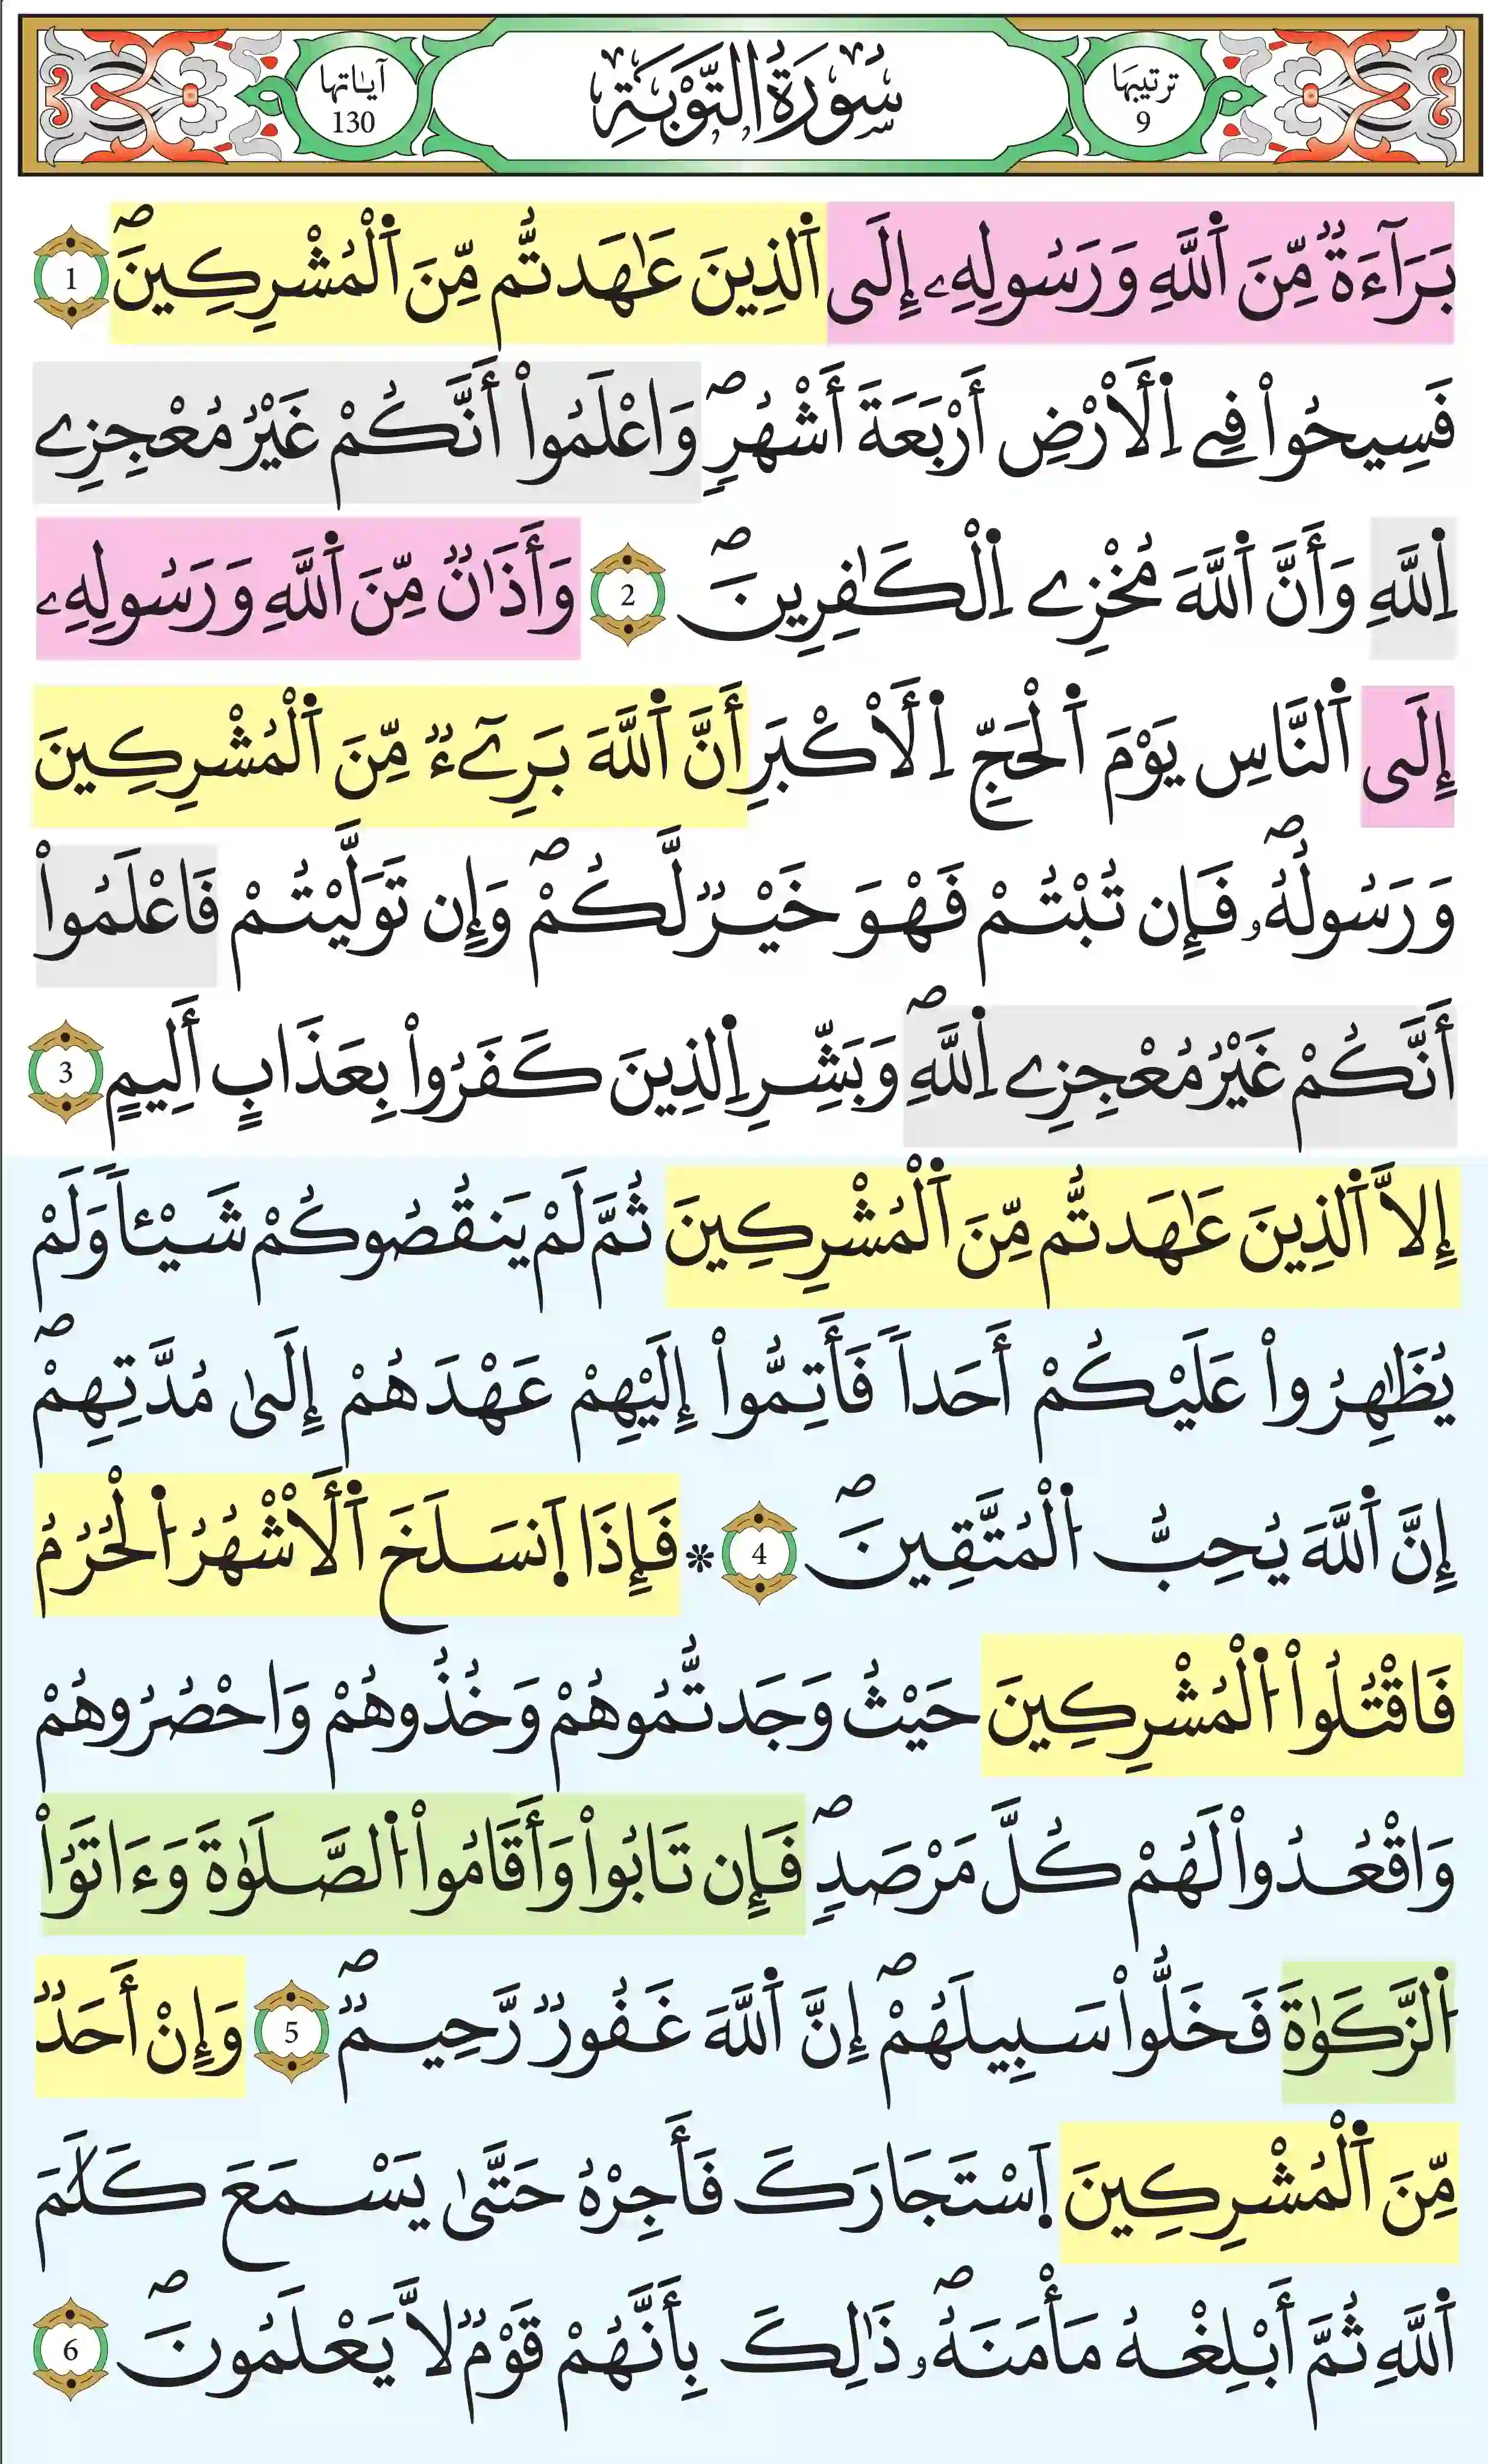 ترتيبها 9
سُورَةُ التَّوْبَةِ
آياتها 130
بَرَآءَةٌ مِّنَ اَ۬للَّهِ وَرَسُولِهِۦٓ إِلَى اَ۬لذِينَ عَٰهَدتُّم مِّنَ اَ۬لْمُشْرِكِينَۖ 1
فَسِيحُواْ فِے اِ۬لَارْضِ أَرْبَعَةَ أَشْهُرٖۖ وَاعْلَمُواْ أَنَّكُمْ غَيْرُ مُعْجِزِے
اِ۬للَّهِ وَأَنَّ اَ۬للَّهَ مُخْزِے اِ۬لْكَٰفِرِينَۖ 2 وَأَذَٰنٌ مِّنَ اَ۬للَّهِ وَرَسُولِهِۦٓ
إِلَى اَ۬لنَّاسِ يَوْمَ اَ۬لْحَجِّ اِ۬لَاكْبَرِ أَنَّ اَ۬للَّهَ بَرِےٓءٌ مِّنَ اَ۬لْمُشْرِكِينَ
وَرَسُولُهُۥۖ فَإِن تُبْتُمْ فَهْوَ خَيْرٌ لَّكُمْۖ وَإِن تَوَلَّيْتُمْ فَاعْلَمُواْ
أَنَّكُمْ غَيْرُ مُعْجِزِے اِ۬للَّهِۖ وَبَشِّرِ اِ۬لذِينَ كَفَرُواْ بِعَذَابٍ أَلِيمٍ 3
إِلاَّ اَ۬لذِينَ عَٰهَدتُّم مِّنَ اَ۬لْمُشْرِكِينَ ثُمَّ لَمْ يَنقُصُوكُمْ شَيْـٔاً وَلَمْ
يُظَٰهِرُواْ عَلَيْكُمْ أَحَداً فَأَتِمُّواْ إِلَيْهِمْ عَهْدَهُمْ إِلَىٰ مُدَّتِهِمْۖ
إِنَّ اَ۬للَّهَ يُحِبُّ اُ۬لْمُتَّقِينَۖ 4 * فَإِذَا اَ۪نسَلَخَ اَ۬لَاشْهُرُ اُ۬لْحُرُمُ
فَاقْتُلُواْ اُ۬لْمُشْرِكِينَ حَيْثُ وَجَدتُّمُوهُمْ وَخُذُوهُمْ وَاحْصُرُوهُمْ
وَاقْعُدُواْ لَهُمْ كُلَّ مَرْصَدٖۖ فَإِن تَابُواْ وَأَقَامُواْ اُ۬لصَّلَوٰةَ وَءَاتَوُاْ
اُ۬لزَّكَوٰةَ فَخَلُّواْ سَبِيلَهُمْۖ إِنَّ اَ۬للَّهَ غَفُورٌ رَّحِيمٌۖ 5 وَإِنْ أَحَدٌ
مِّنَ اَ۬لْمُشْرِكِينَ اَ۪سْتَجَارَكَ فَأَجِرْهُ حَتَّىٰ يَسْمَعَ كَلَٰمَ
اَ۬للَّهِ ثُمَّ أَبْلِغْهُ مَأْمَنَهُۥۖ ذَٰلِكَ بِأَنَّهُمْ قَوْمٌ لاَّ يَعْلَمُونَۖ 6